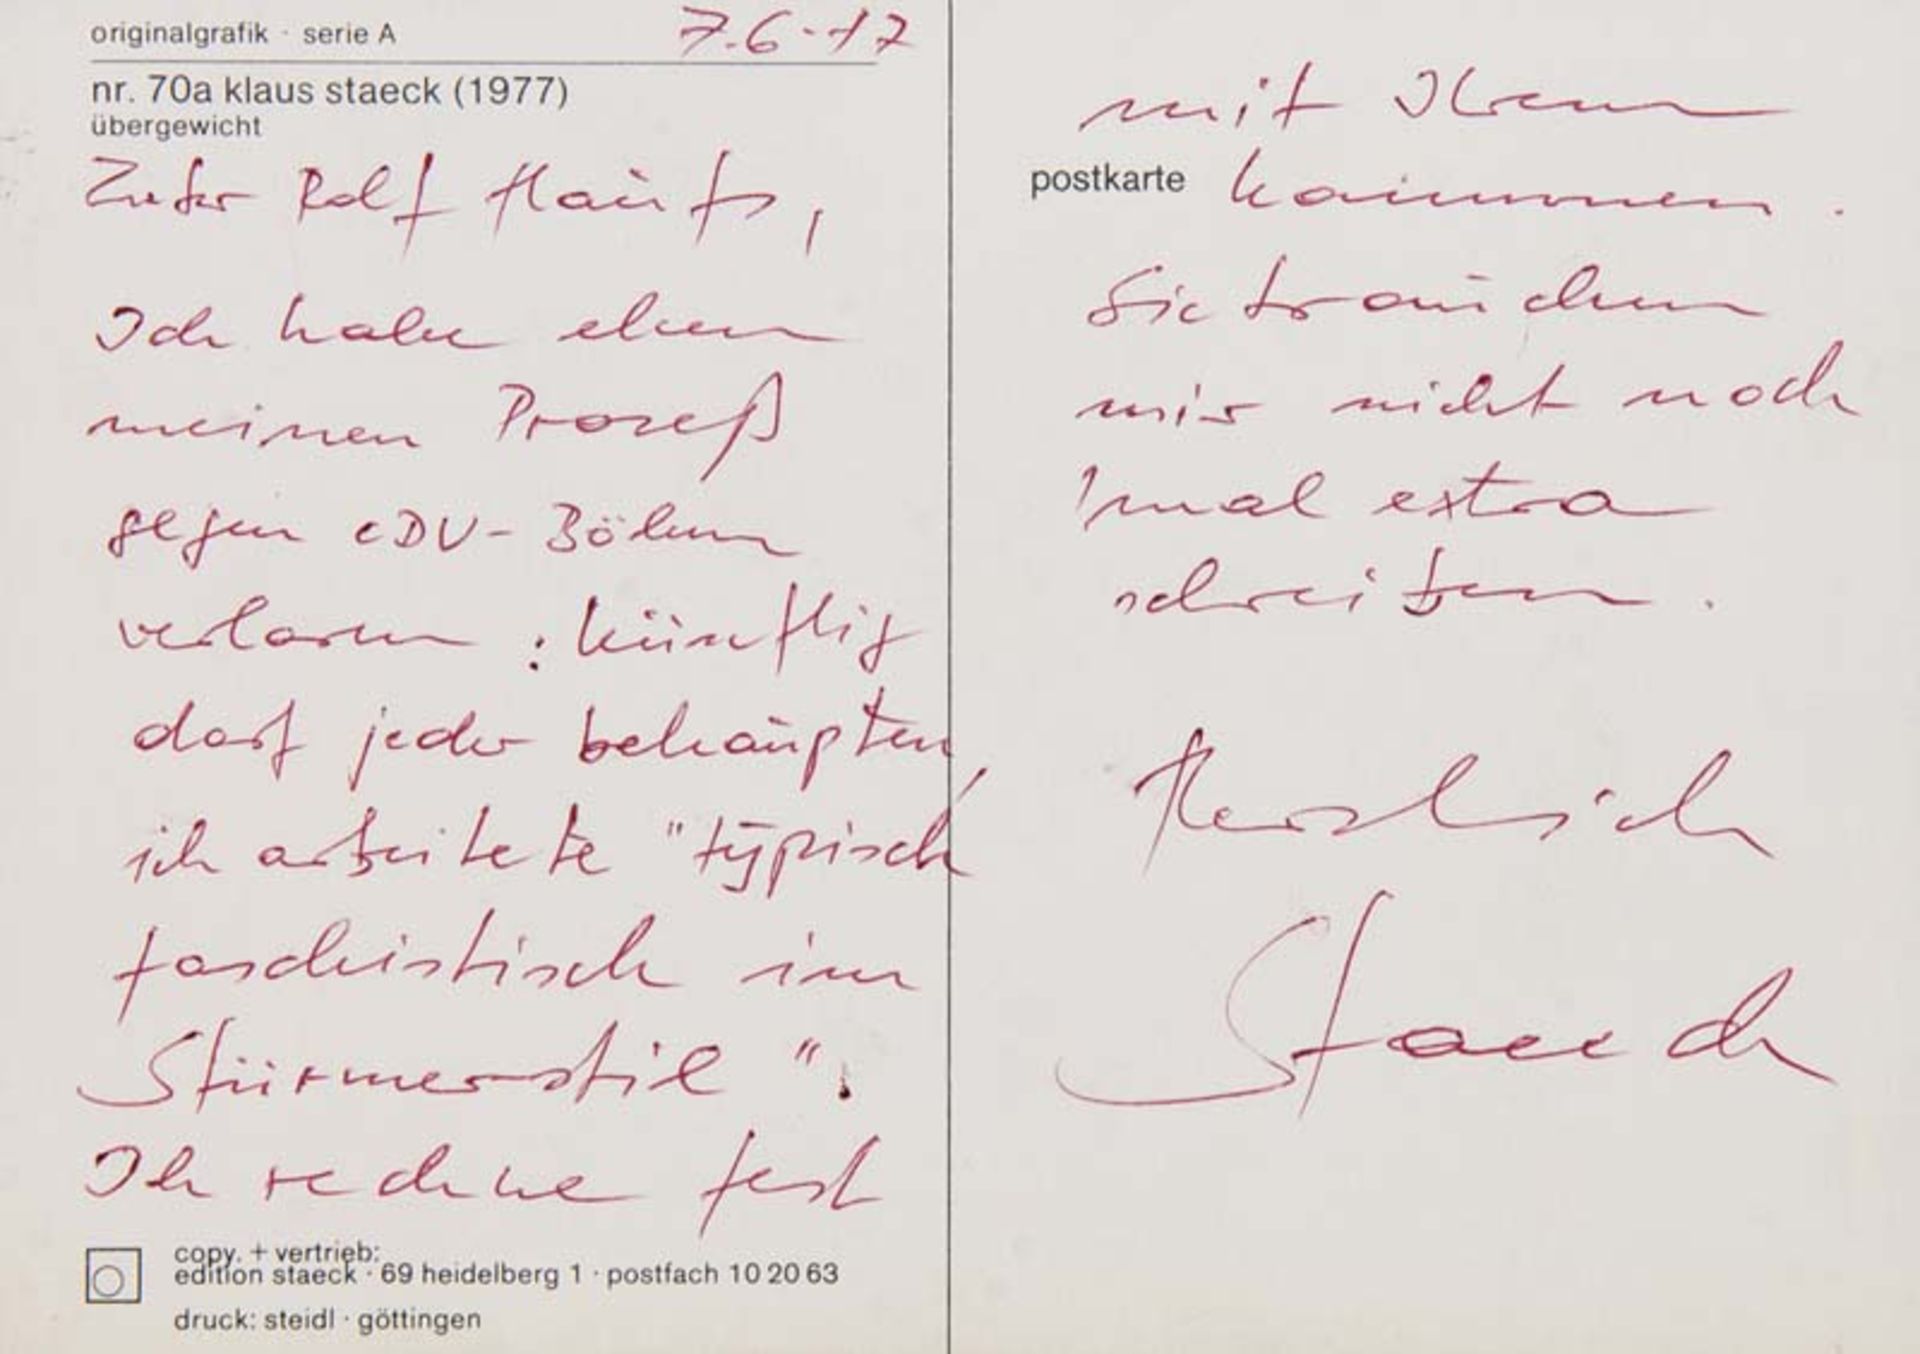 originalgrafik · serie A
7.6.77
nr. 70a klaus staeck (1977)
übergewicht
Lieber Rolf Haufs,
Ich habe eben
meinen Prozeß
gegen CDU-Böhm
verloren: künftig
darf jeder behaupten,
ich arbeitete "typisch
faschistisch im
Stürmerstil".
Ich rechne fest
copy. + vertrieb:
edition staeck · 69 heidelberg 1 · postfach 10 20 63
druck: steidl · göttingen
mit Ihrem
postkarte
kommen.
Sie brauchen
mir nicht noch
1mal extra
schreiben.
Herzlich
Staeck